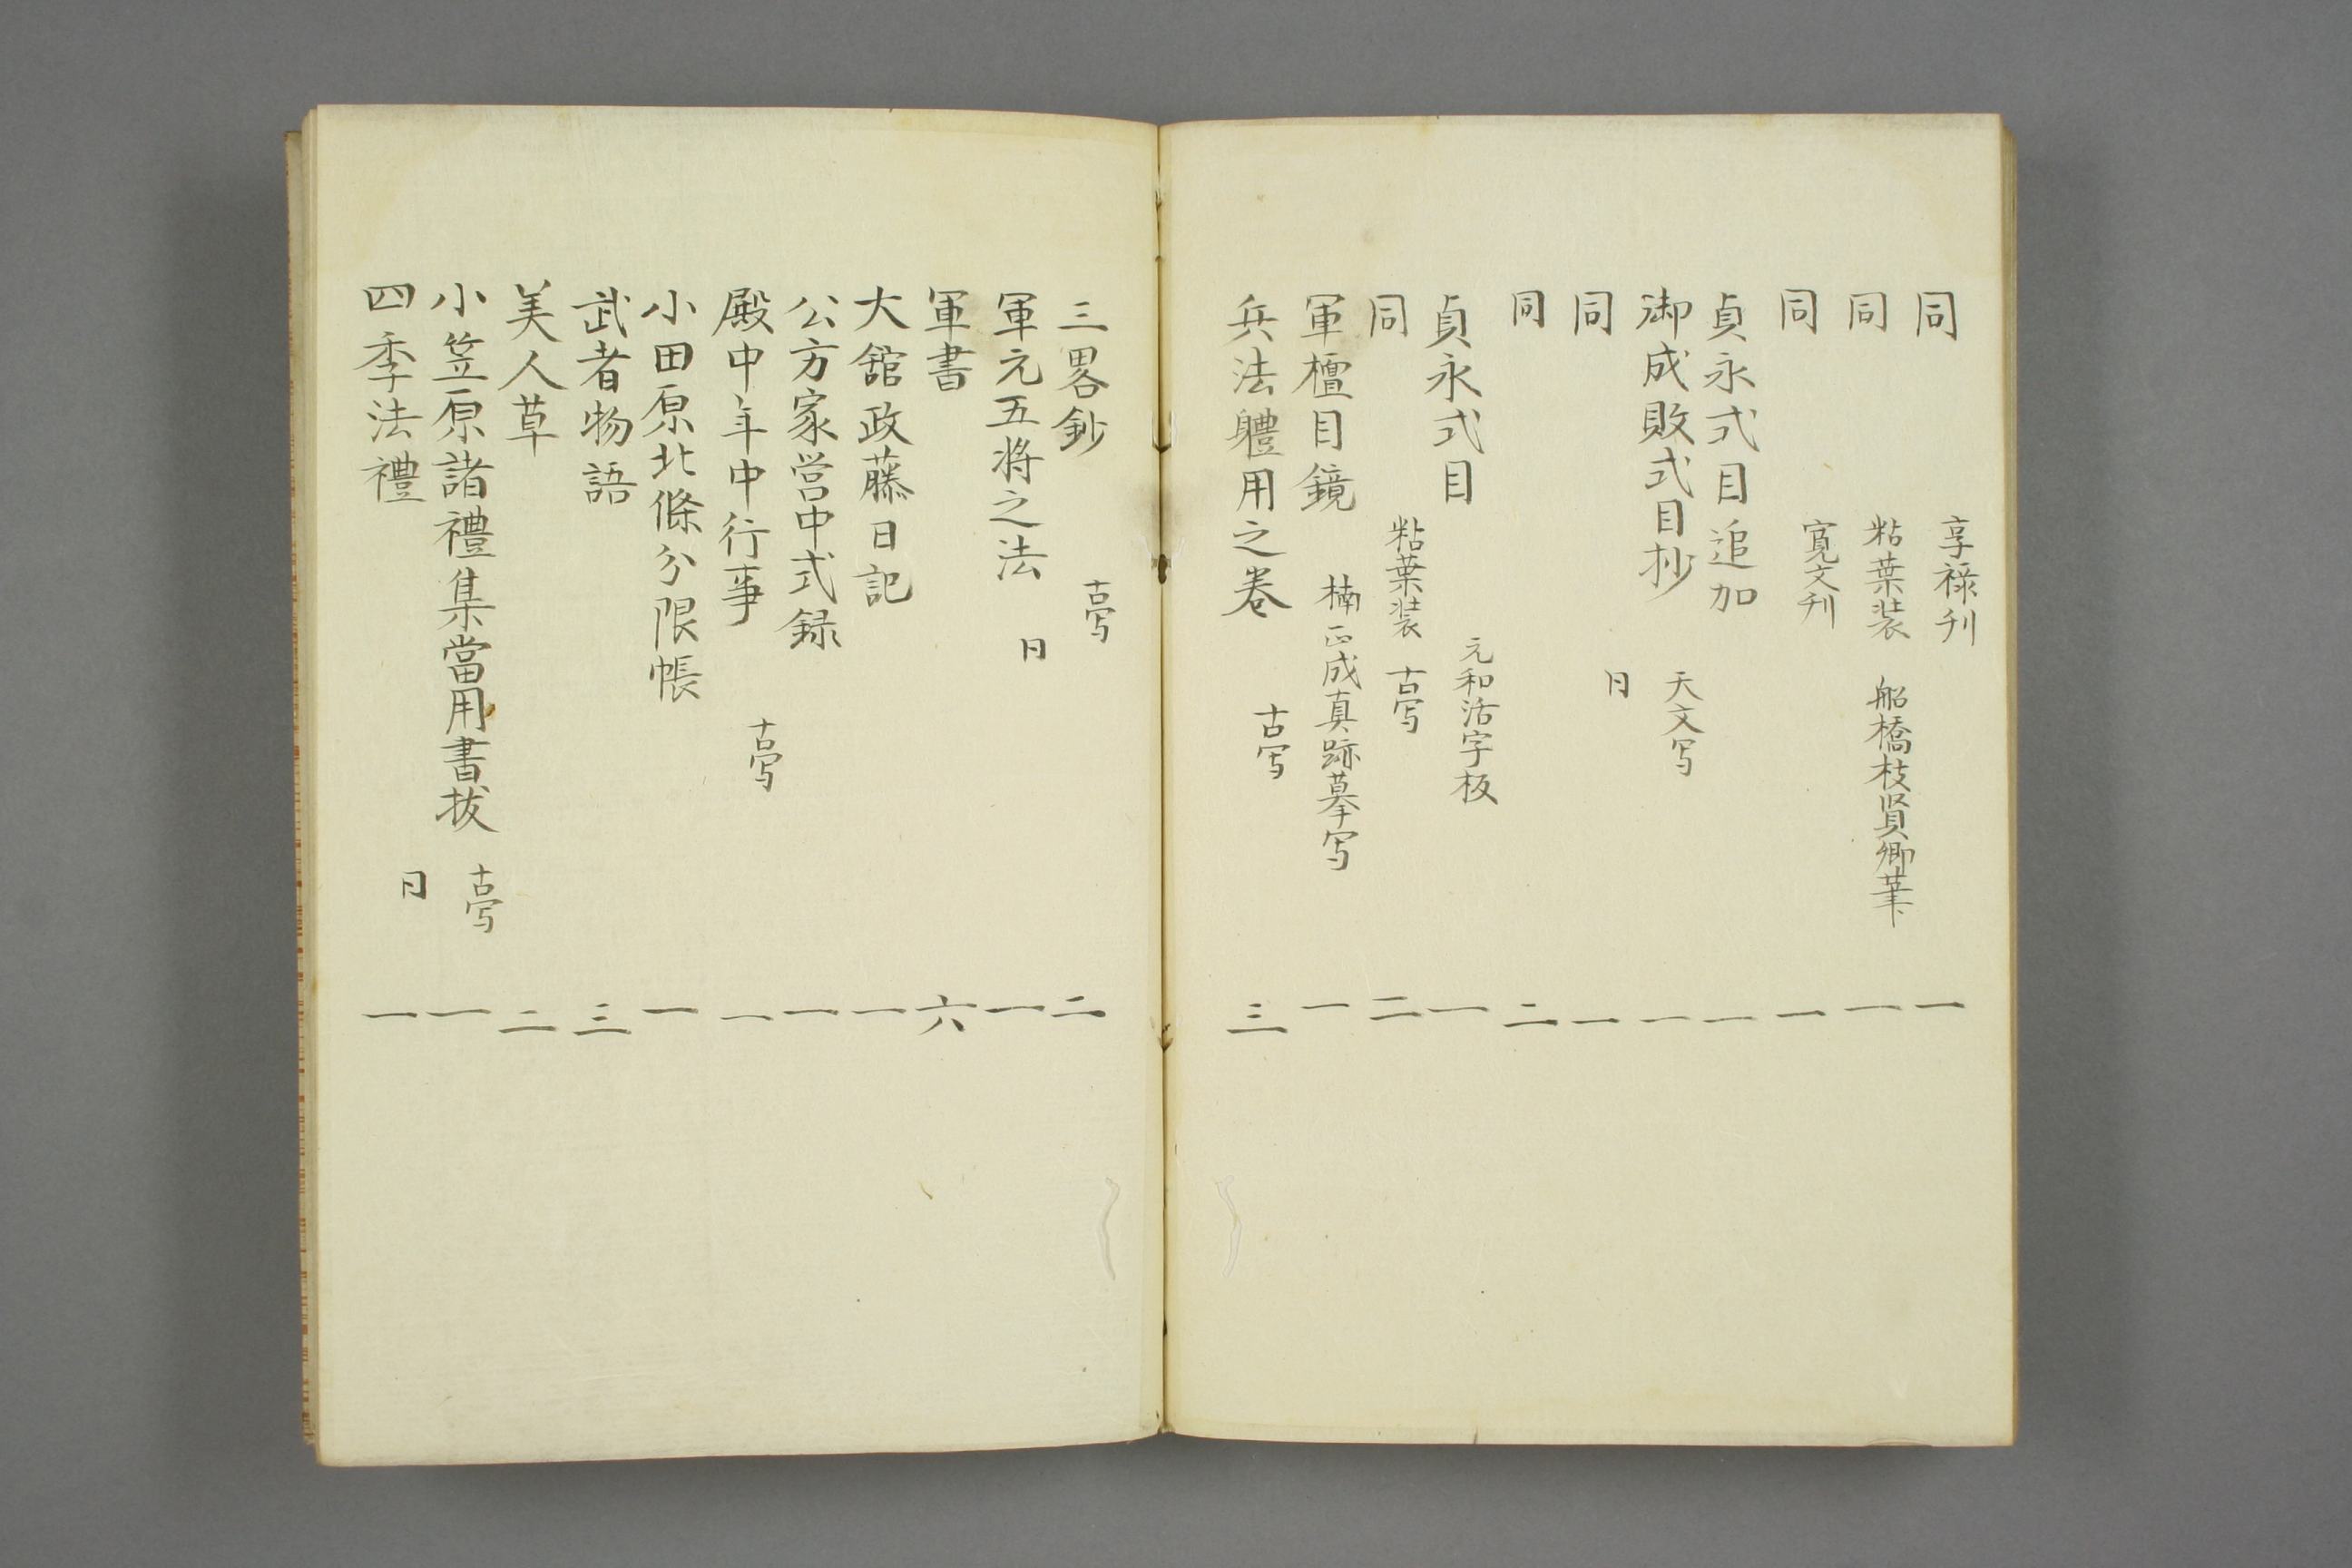 同 享禄刊 一
同 粘葉装 船橋枝賢卿筆 一
同 寛文刊 一
貞永式目追加 一
御成敗式目抄 天文写 一
同 日 一
同 二
貞永式目 元和活字板 一
同 粘葉装 古写 二
軍檀目鏡 楠正成真跡摹写 一
兵法軆用之巻 古写 三
三畧鈔 古写 二
軍元五将之法 日 一
軍書 六
大舘政藤日記 一
公方家営中式録 一
殿中年中行事 古写 一
小田原北條分限帳 一
武者物語 三
美人草 二
小笠原諸禮集當用書抜 古写 一
四季法禮 日 一